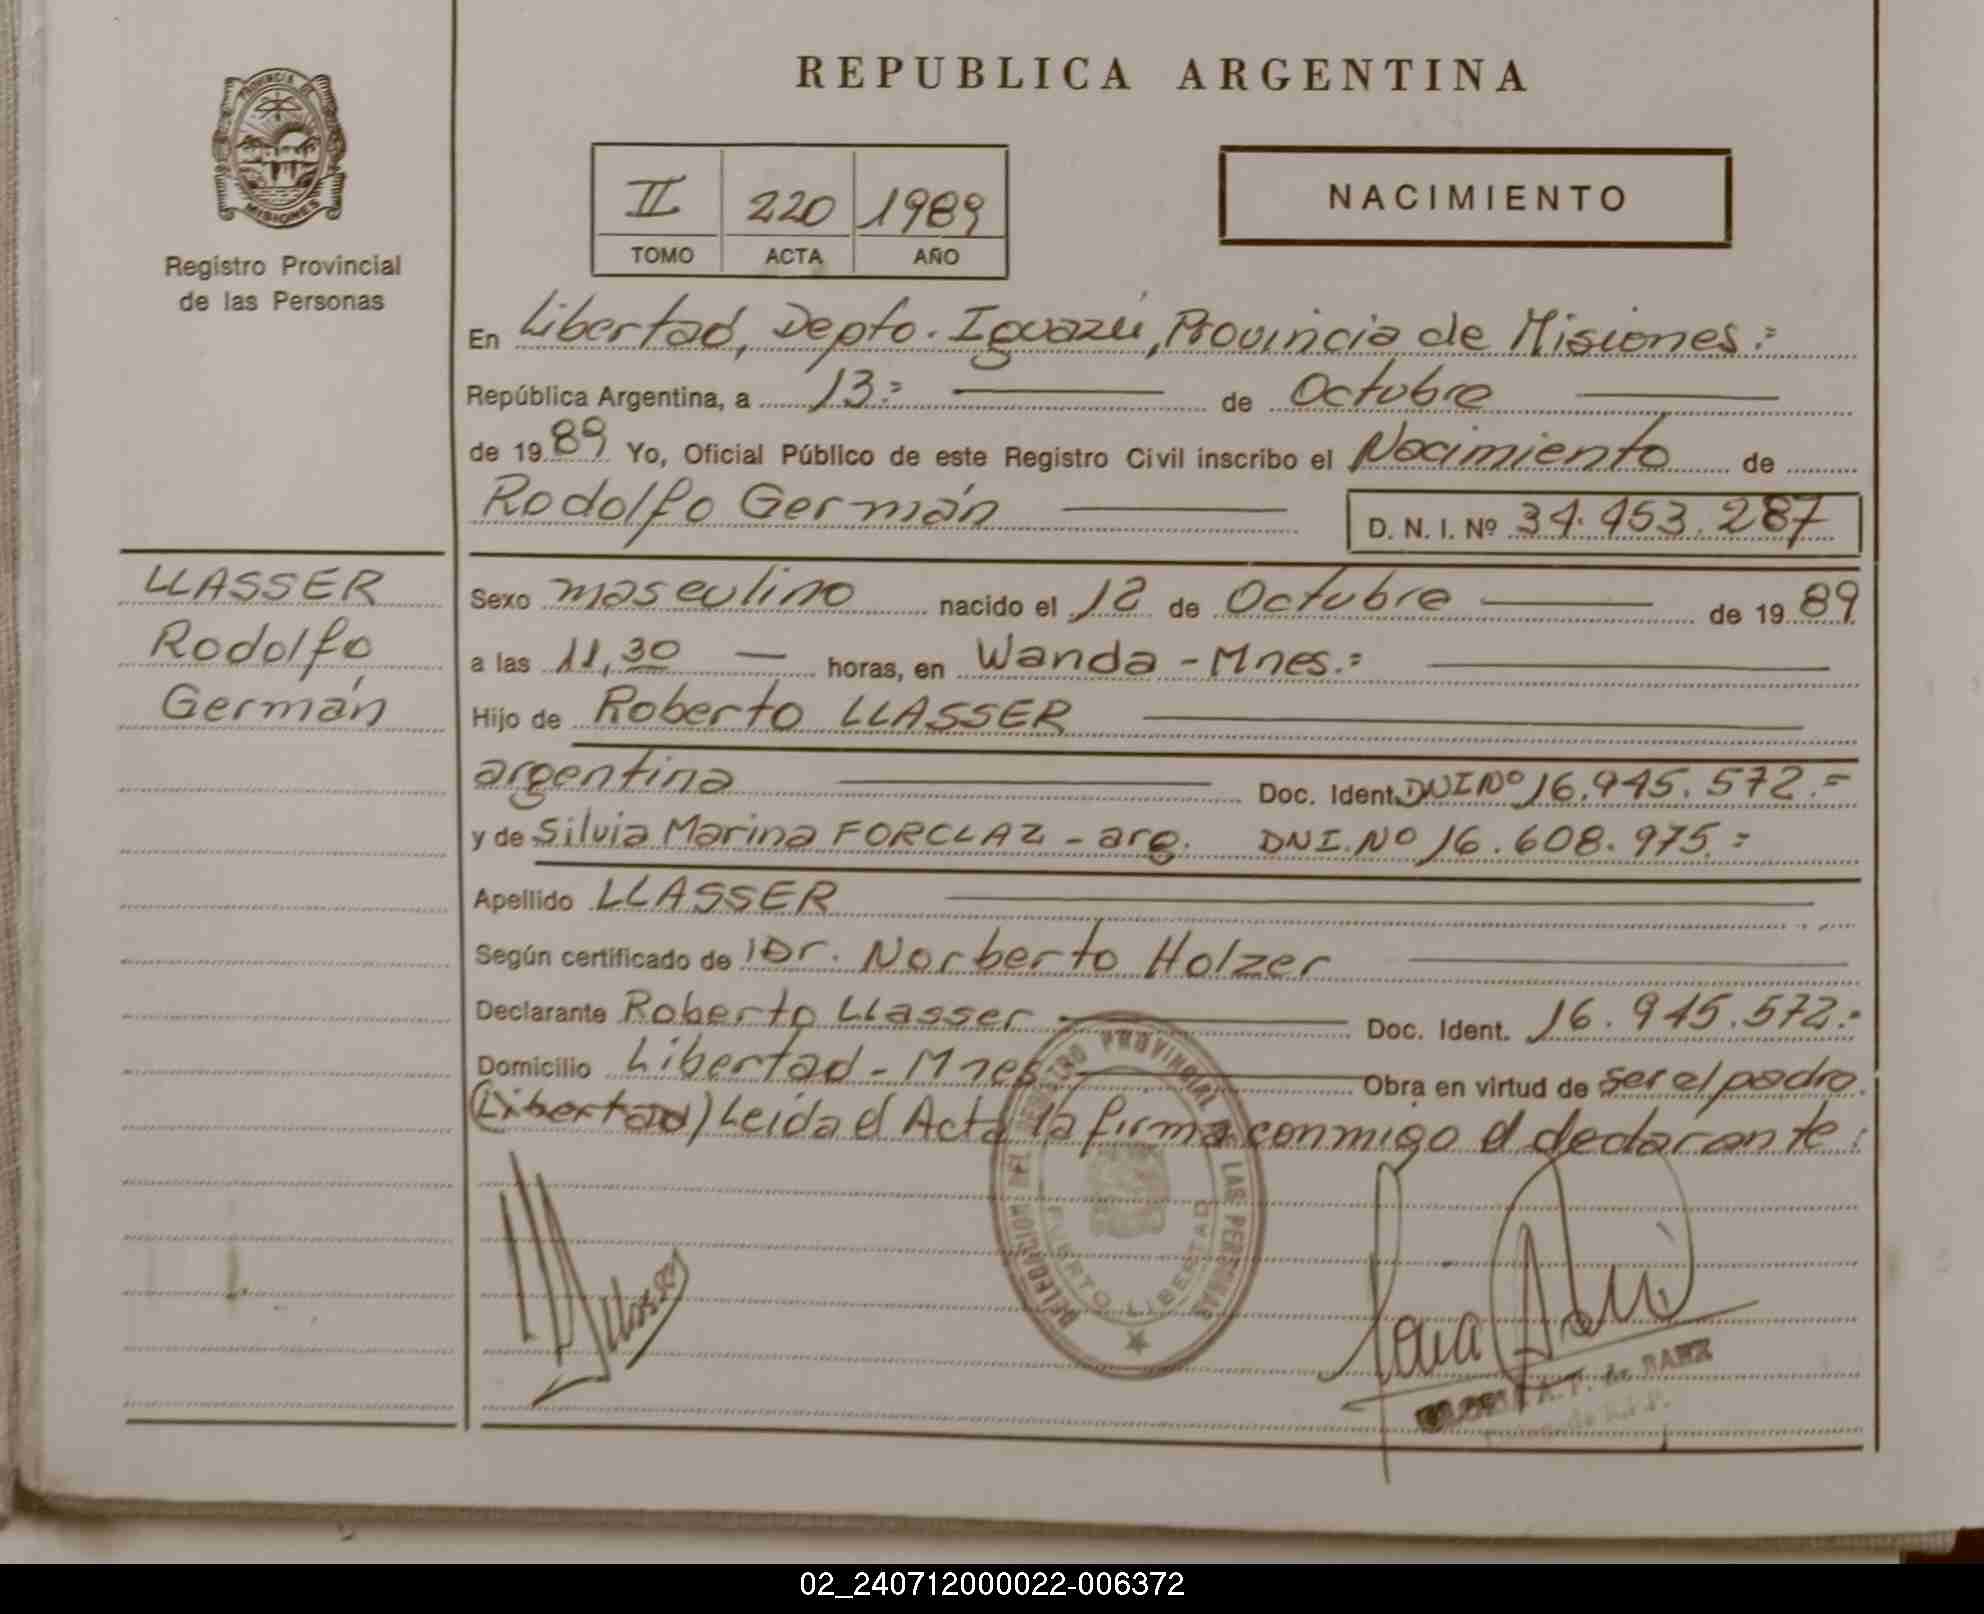 PROVINCIA DE
MISIONES
Registro Provincial
de las Personas
REPUBLICA ARGENTINA
II 220 1989
TOMO ACTA AÑO
NACIMIENTO
En Libertad, Depto. Iguazú, Provincia de Misiones.=
República Argentina, a 13.= de Octubre
de 1989 Yo, Oficial Público de este Registro Civil inscribo el Nacimiento de
Rodolfo Germán
D. N. I. Nº 34.453.287
LLASSER
Rodolfo
Germán
Sexo masculino nacido el 12 de Octubre de 1989
a las 11,30 horas, en Wanda - Mnes.=
Hijo de Roberto LLASSER
argentina Doc. Ident. DNI Nº 16.945.572.=
y de Silvia Marina FORCLAZ - arg. DNI. Nº 16.608.975.=
Apellido LLASSER
Según certificado de Dr. Norberto Holzer
Declarante Roberto LLasser Doc. Ident. 16.945.572.-
Domicilio Libertad - Mnes Obra en virtud de ser el padre.
(Libertad) Leída el Acta la firma conmigo el declarante.
DELEGACION DEL REGISTRO PROVINCIAL DE LAS PERSONAS
PUERTO LIBERTAD
GLORIA A. F. de BAEZ
02_240712000022-006372